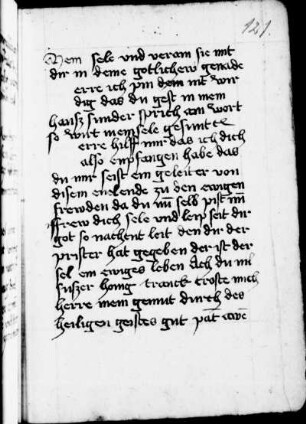 121
Dem sele vnd veram sie mit
dir in deine gotlichew genade
erre ich pin dein nit wir
dig das du gest in mein
hausz sunder sprich am wort
so wirt mein sele gesunt
erre hilff mir das ich dich
also enpfangen habe das
du mir seist ein geleiter von
disem enelende zu den ewigen
frewden da du mi selb pist in
ffrew dich sele vnd leip seit dir
got so nachent leit den dir der
prister hat gegeben der ist der
sel ein ewiges leben Ach du mi
suszer honig tranck troste mich
herre mein gemut durch des
heiligen geistes gut pat ave